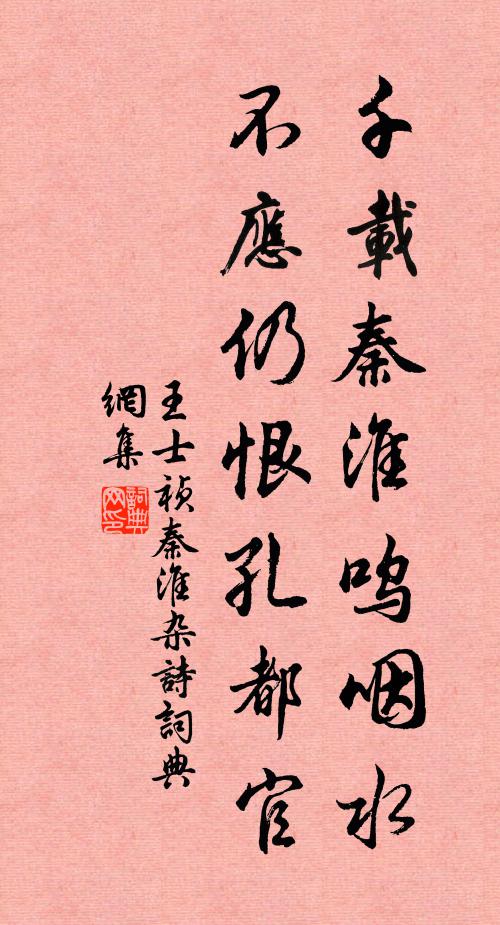 千載秦淮嗚咽水
不應仍恨孔都官
王士禎秦淮杂詩詞典
網集
詞典
网印